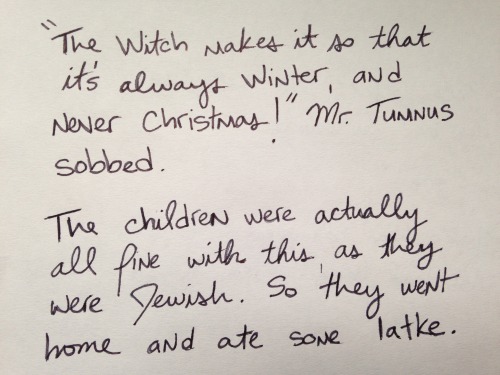 "The Witch makes it so that
it's always Winter, and
never Christmas!" Mr. Tumnus
sobbed.
The children were actually
all fine with this, as they
were Jewish. So they went
home and ate some latke.